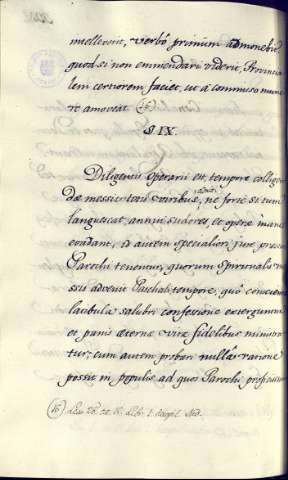 intellexerit, verbo primum admonebit
quod si non emmendari viderit, Provincia
lem certiorem faciet, ut a commisso mune
re amoveat (16)
§ IX.
Diligentis operarii est, tempore colligen
dæ messis totis viribus, ne forte si tunc
languescat, annui sudores, et operæ inanes
evadant, id autem speciali jure præs
Parochi tenentur, quorum spiritualis me
ssis advenit Paschali tempore, quo conscien
labulæ salubri confesione exterguntur
et panis æternæ vitæ fidelibus ministra
tur; cum autem probari nulla ratione
possit in populis ad quos Parochi profecturi
(16) Leu 28. tt. 15. Lib. 1. Recopil. Ind.